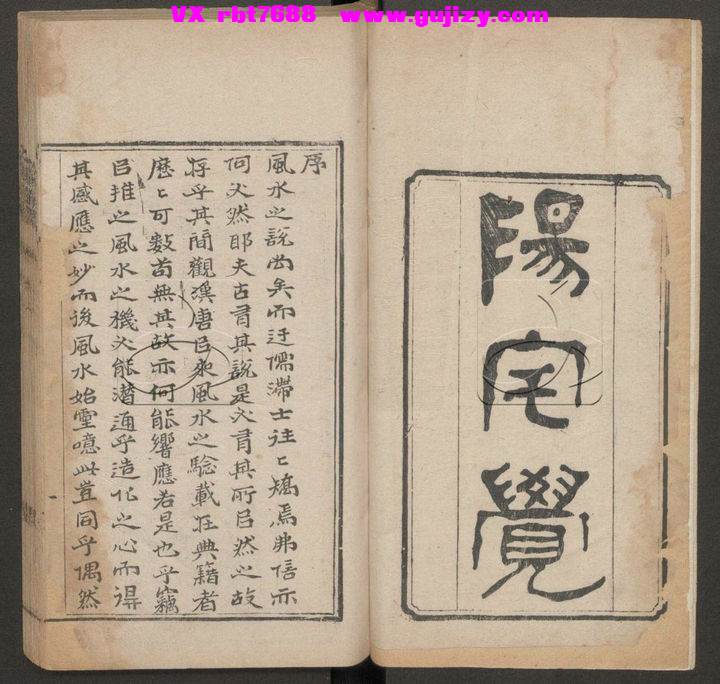 VX rbt7688 www.gujizy.com
陽宅覺
序
風水之說尚矣而迂儒滯士往〻矯焉弗信亦
何必然耶夫古有其說是必有其所㠯然之故
存乎其間觀漢唐㠯來風水之驗載在典籍者
歷〻可數苟無其故亦何能響應若是也乎竊
㠯推之風水之機必能潛通乎造化之心而得
其感應之妙而後風水始靈噫此豈同乎偶然